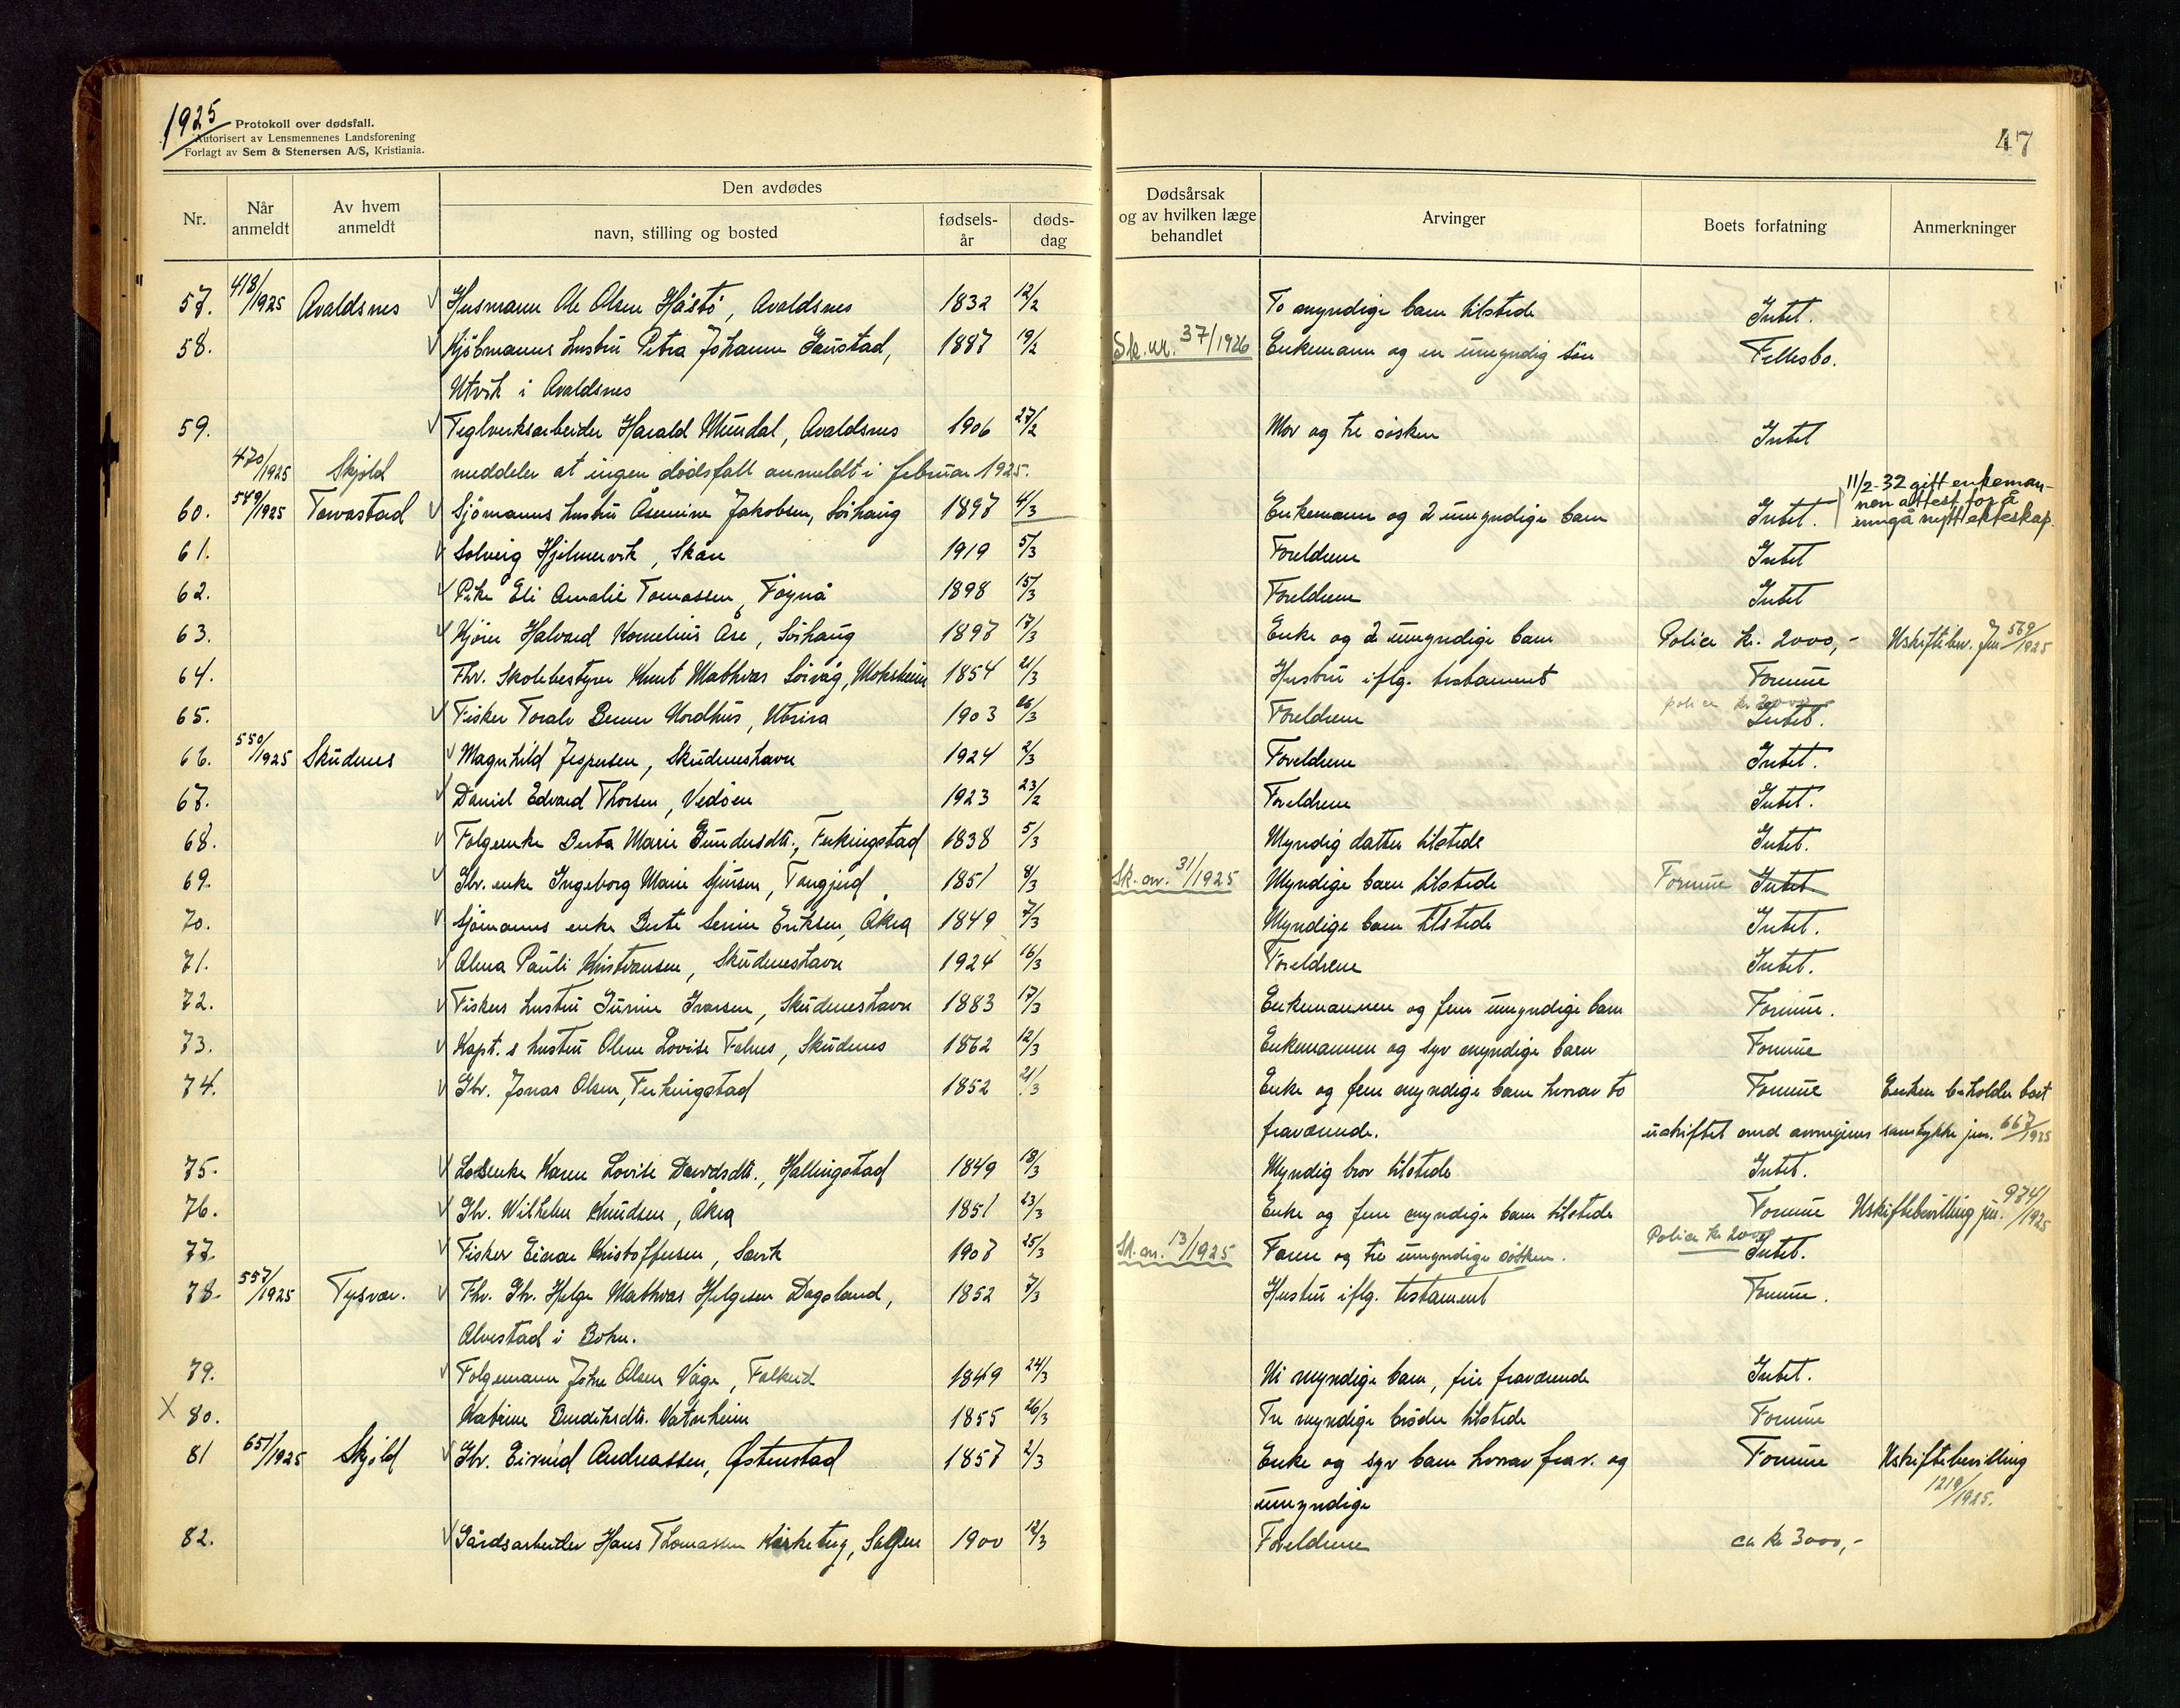 1925
Protokoll over dødsfall.
Autorisert av Lensmennenes Landsforening
Forlagt av Sem & Stenersen A/S, Kristiania.
47
Nr. Når anmeldt Av hvem anmeldt Den avdødes navn, stilling og bosted fødsels-år døds-dag Dødsårsak og av hvilken læge behandlet Arvinger Boets forfatning Anmerkninger
57. 418/1925 Avaldsnes Husmann Ole Olsen Håstø, Avaldsnes 1832 12/2 To myndige barn tilstede Intet.
58. Kjøbmanns hustru Petra Johanne Gaustad, 1887 19/2 Sk. nr. 37/1926 Enkemann og en umyndig søn Fellesbo.
Utvik i Avaldsnes
59. Teglverksarbeider Harald Mundal, Avaldsnes 1906 27/2 Mor og tre søsken Intet
470/1925 Skjold meddeler at ingen dødsfall anmeldt i februar 1925.
60. 549/1925 Torvastad Sjømanns hustru Åsemine Jakobsen, Sørhaug 1897 4/3 Enkemann og 2 umyndige barn Intet. 11/2-32 gitt enkeman-
nen attest for å
inngå nytt ekteskap.
61. Solveig Hjelmervik, Skåre 1919 5/3 Foreldrene Intet
62. Pike Eli Amalie Tomassen, Føynå 1898 15/3 Foreldrene Intet
63. Kjører Halvard Kornelius Åse, Sørhaug 1897 17/3 Enke og 2 umyndige barn Police kr. 2000,- Uskiftebev. Jnr. 569/1925
64. Fhv. Skolebestyrer Knut Mathias Sørvåg, Moksheim 1854 21/3 Hustru iflg. testament Formue
65. Fisker Toralv Benner Nordhus, Utsira 1903 26/3 Foreldrene police kr. 2000 Intet.
66. 550/1925 Skudenes Magnhild Jespersen, Skudeneshavn 1924 2/3 Foreldrene Intet.
67. Daniel Edvard Thorsen, Vedøen 1923 23/2 Foreldrene Intet.
68. Folgeenke Berta Marie Gundersdtr., Ferkingstad 1838 5/3 Myndig datter tilstede Intet.
69. Gbr. enke Ingeborg Marie Sjursen, Tangjerd 1851 8/3 Sk. nr. 31/1925 Myndige barn tilstede Formue Intet
70. Sjømanns enke Berte Serine Eriksen, Åkra 1849 7/3 Myndige barn tilstede Intet.
71. Alma Pauli Kristiansen, Skudeneshavn 1924 16/3 Foreldrene Intet.
72. Fiskers hustru Gurine Ivarsen, Skudeneshavn 1883 17/3 Enkemannen og fem umyndige barn Formue.
73. Kapt.s hustru Olene Lovise Falnes, Skudenes 1862 12/3 Enkemannen og syv myndige barn Formue
74. Gbr. Jonas Olsen, Ferkingstad 1852 21/3 Enke og fem myndige barn hvorav to Formue Enken beholder boet
fraværende. uskiftet med arvingers samtykke jnr. 667/1925
75. Losenke Karen Lovise Davidsdtr., Hallingstad 1849 18/3 Myndig bror tilstede Intet.
76. Gbr. Wilhelm Knudsen, Åkra 1851 23/3 Enke og fem myndige barn tilstede Formue Uskiftebevilling jnr. 974/1925
77. Fisker Einar Kristoffersen, Sævik 1907 25/3 Sk. nr. 13/1925 Farme og tre umyndige søsken. Police kr 2000 Intet.
78. 557/1925 Tysvær. Fhv. Gbr. Helge Mathias Helgesen Dagsland, 1852 7/3 Hustru iflg. testament Formue.
Alvestad i Bokn.
79. Folgemann John Olsen Våge, Falkeid 1849 24/3 Ni myndige barn, fire fraværende Intet.
X 80. Katrine Bendiksdtr. Vatnheim 1855 26/3 Tre myndige brødre tilstede Formue
81 651/1925 Skjold Gbr. Eivind Andreassen, Østenstad 1857 2/3 Enke og syv barn hvorav frav. og Formue Uskiftebevilling
umyndige 1219/1925.
82. Gårdsarbeider Hans Thomassen Kirketeig, 1900 12/3 Foreldrene ca kr 3000,-